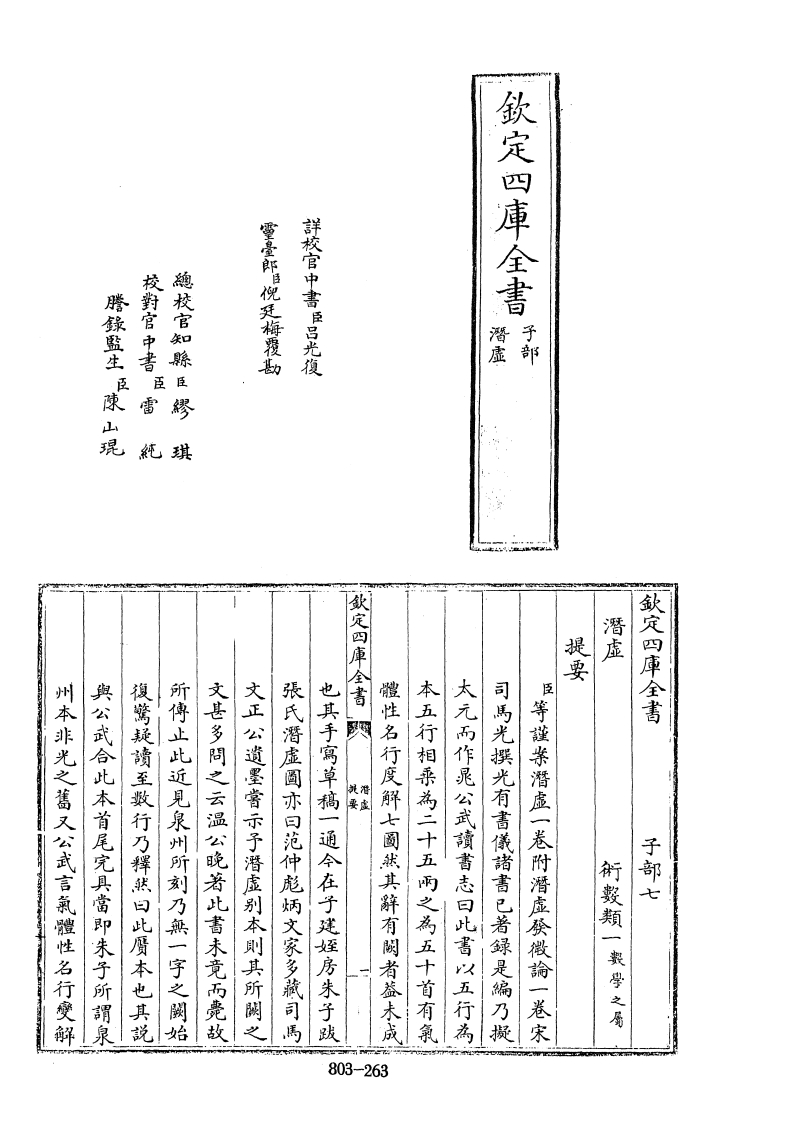 欽定四庫全書
子部
潛虛
詳校官中書臣呂光復
靈臺郎臣倪廷梅覆勘
總校官知縣臣繆琪
校對官中書臣雷純
謄錄監生臣陳山琨
欽定四庫全書
子部七
潛虛
術數類一數學之屬
提要
臣等謹案潛虛一卷附潛虛發微論一卷宋
司馬光撰光有書儀諸書已著録是編乃擬
太元而作晁公武讀書志曰此書以五行為
本五行相乘為二十五兩之為五十首有氣
體性名行度解七圖然其辭有闕者蓋未成
欽定四庫全書
潛虛
提要
一
也其手寫草稿一通今在子建姪房朱子跋
張氏潛虛圖亦曰范仲彪炳文家多藏司馬
文正公遺墨嘗示予潛虛别本則其所闕之
文甚多問之云溫公晚著此書未竟而薨故
所傳止此近見泉州所刻乃無一字之闕始
復驚疑讀至數行乃釋然曰此贗本也其説
與公武合此本首尾完具當即朱子所謂泉
州本非光之舊又公武言氣體性名行變解
803-263